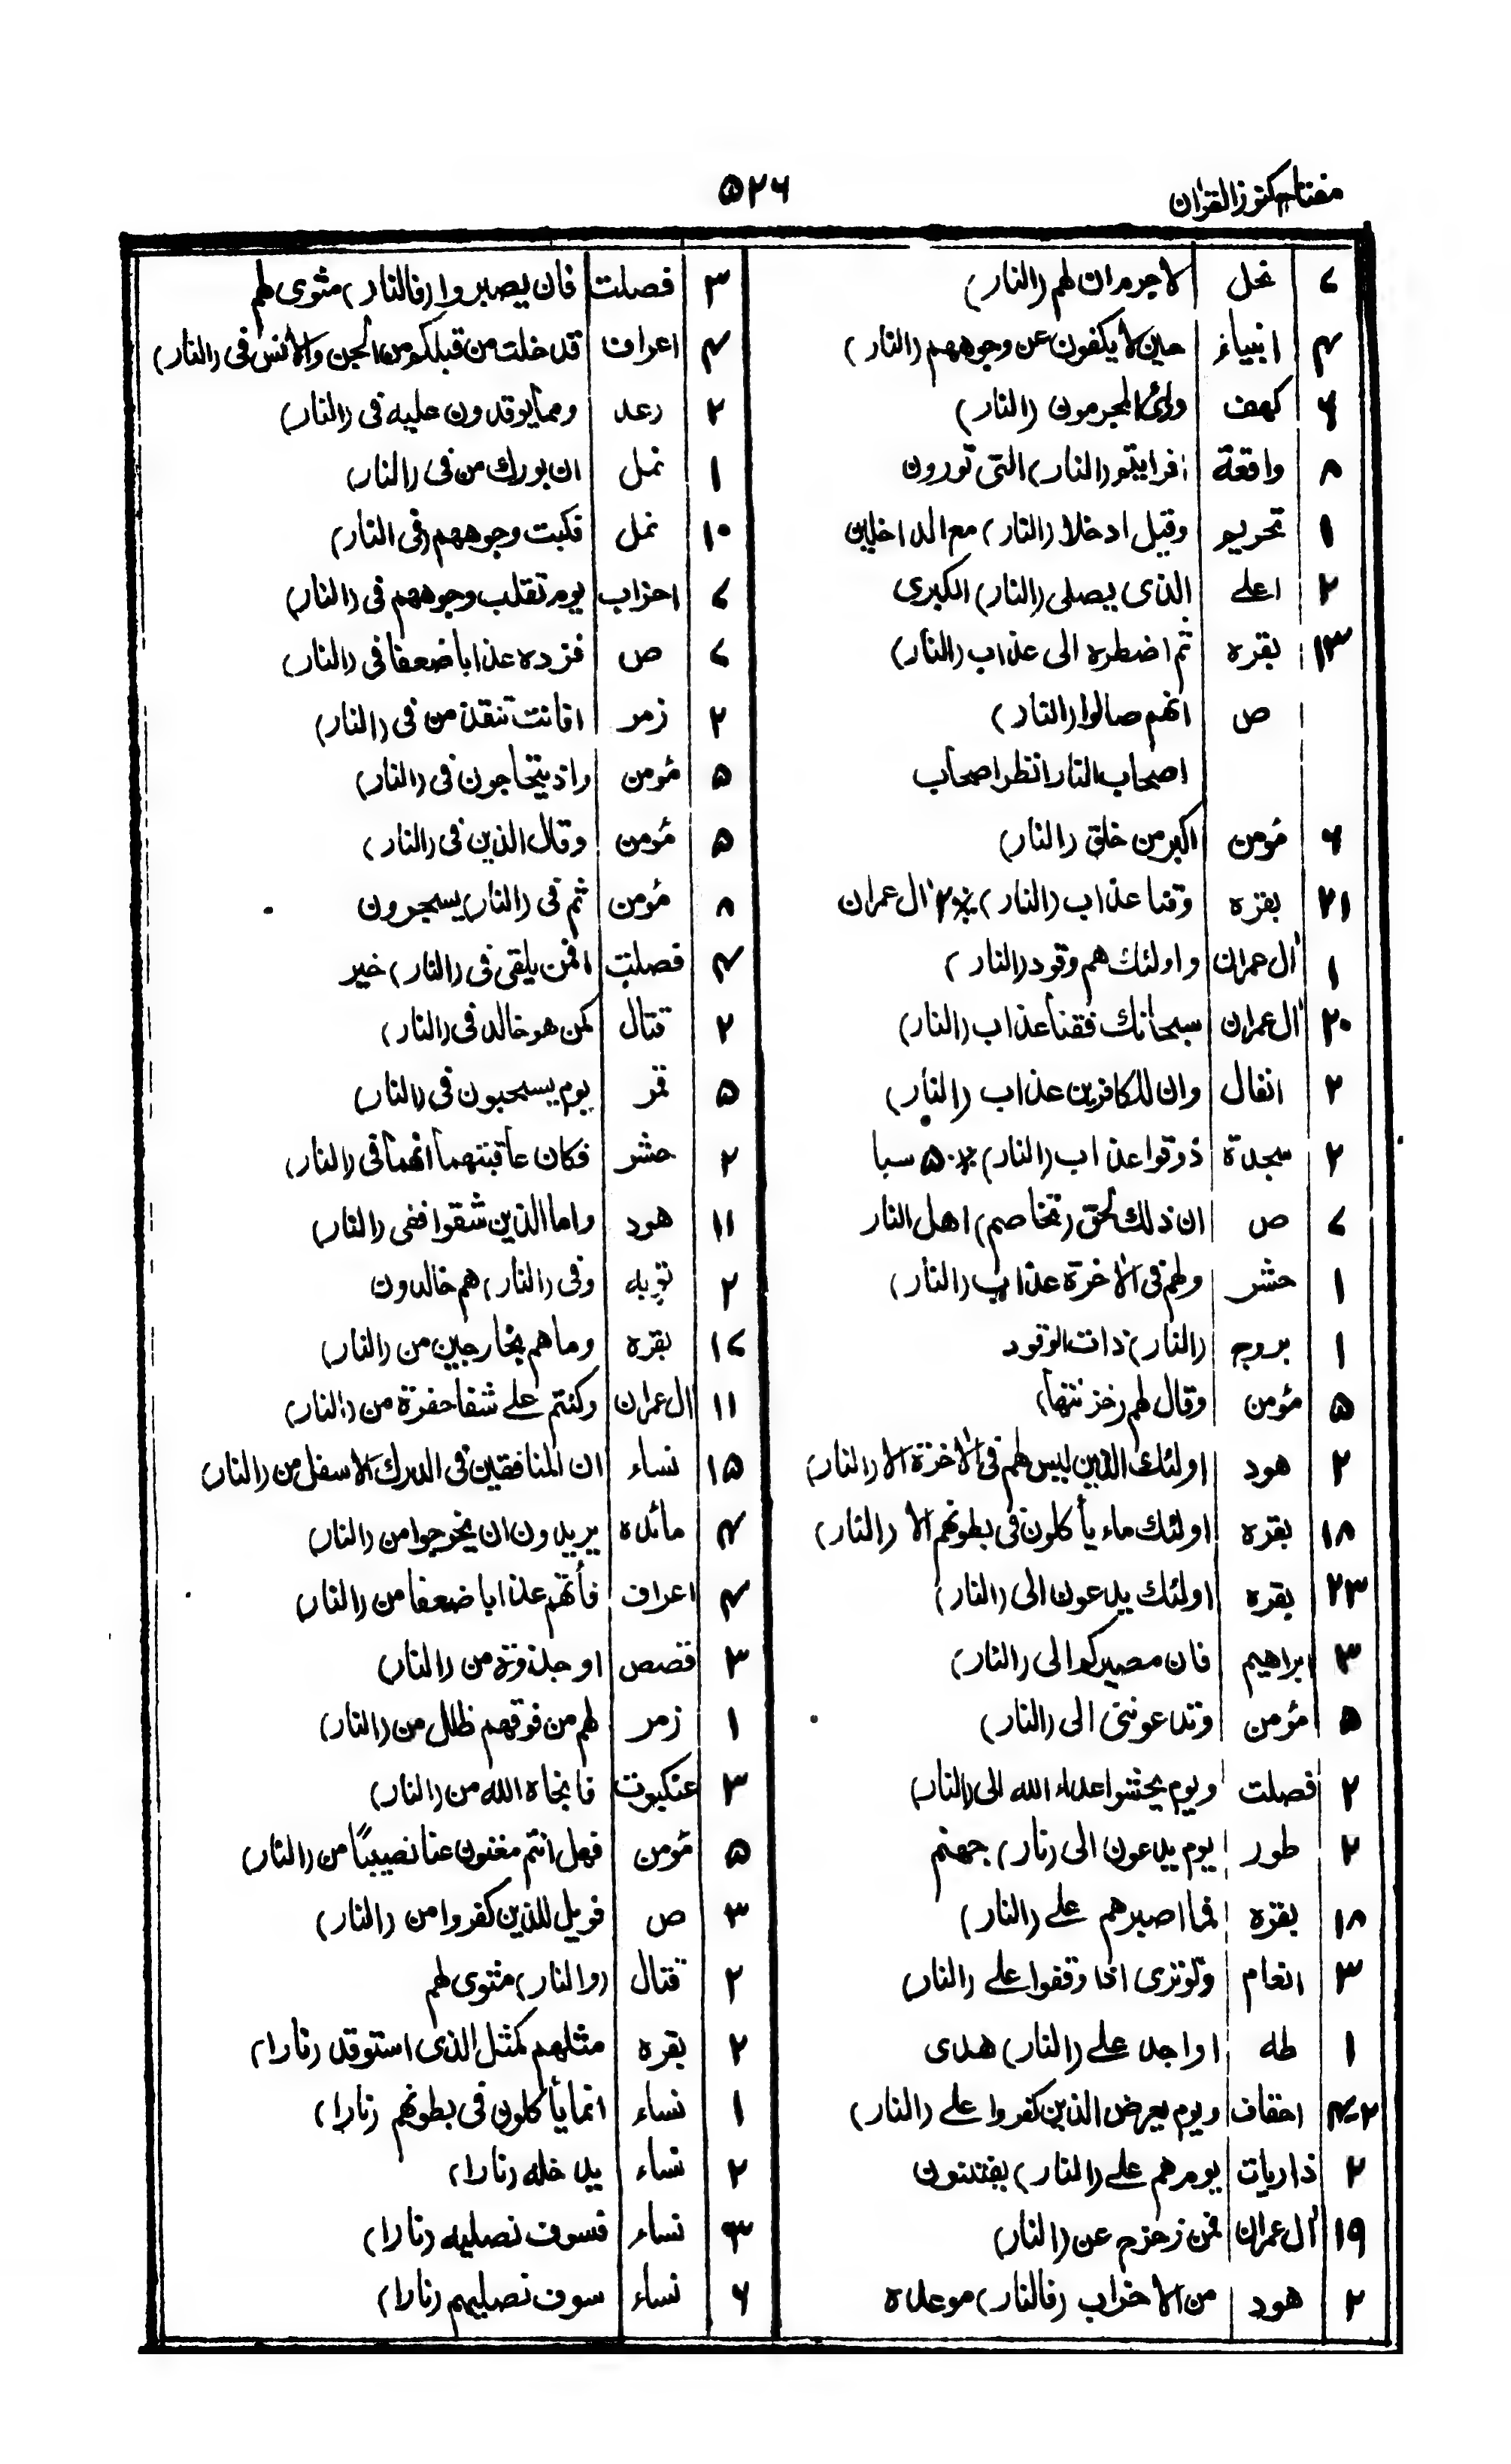 مفتاح كنوز القرآن
۵۲۶
۷ نحل لاجرم ان لهم (النار)
۴ انبياء حين لا يكفون عن وجوههم (النار)
۶ كهف ورائ المجرمون (النار)
۸ واقعة افرايتم (النار) التى تورون
۱ تحريم وقيل ادخلا (النار) مع الداخلين
۲ اعلے الذى يصلى (النار) الكبرى
۱۳ بقره ثم اضطره الى عذاب (النار)
ص انهم صالوا (النار)
اصحاب النار انظر اصحاب
۶ مؤمن اكبر من خلق (النار)
۲۱ بقره وقنا عذاب (النار) * ۲ آل عمران
۱ آل عمران واولئك هم وقود (النار)
۲۰ آل عمران سبحانك فقنا عذاب (النار)
۲ انفال وان للكافرين عذاب (النار)
۲ سجدة ذوقوا عذاب (النار) * ۵ سبا
۷ ص ان ذلك لحق (تخاصم) اهل النار
۱ حشر ولهم فى الاخرة عذاب (النار)
۱ بروج (النار) ذات الوقود
۵ مؤمن وقال لهم (خزنتها)
۲ هود اولئك الذين ليس لهم فى الاخرة الا (النار)
۱۸ بقره اولئك ماء يأكلون فى بطونهم الا (النار)
۲۳ بقره اولئك يدعون الى (النار)
۳ ابراهيم فان مصيركم الى (النار)
۵ مؤمن وتدعوننى الى (النار)
۲ فصلت ويوم يحشر اعداء الله الى (النار)
۲ طور يوم يدعون الى (نار) جهنم
۱۸ بقره فما اصبرهم علے (النار)
۳ انعام ولو ترى اذا وقفوا علے (النار)
۱ طه او اجد علے (النار) هدى
۲-۴ احقاف ويوم يعرض الذين كفروا علے (النار)
۲ ذاريات يوم هم علے (النار) يفتنون
۱۹ آل عمران فمن زحزح عن (النار)
۲ هود من الاحزاب (فالنار) موعده
۳ فصلت فان يصبروا (فالنار) مثوى لهم
۴ اعراف قد خلت من قبلكم من الجن والانس فى (النار)
۲ رعد ومما يوقدون عليه فى (النار)
۱ نمل ان بورك من فى (النار)
۱۰ نمل فكبت وجوههم (فى النار)
۷ احزاب يوم تقلب وجوههم فى (النار)
۷ ص فزده عذابا ضعفا فى (النار)
۲ زمر افانت تنقذ من فى (النار)
۵ مؤمن واذ يتحاجون فى (النار)
۵ مؤمن وقال الذين فى (النار)
۸ مؤمن ثم فى (النار) يسجرون
۴ فصلت افمن يلقى فى (النار) خير
۲ قتال كمن هو خالد فى (النار)
۵ قمر يوم يسحبون فى (النار)
۲ حشر فكان عاقبتهما انهما فى (النار)
۱۱ هود واما الذين شقوا ففى (النار)
۲ توبه وفى (النار) هم خالدون
۱۷ بقره وما هم بخارجين من (النار)
۱۱ ال عمران وكنتم علے شفا حفرة من (النار)
۱۵ نساء ان المنافقين فى الدرك الاسفل من (النار)
۴ مائده يريدون ان يخرجوا من (النار)
۴ اعراف فأتهم عذابا ضعفا من (النار)
۳ قصص او جذوة من (النار)
۱ زمر لهم من فوقهم ظلل من (النار)
۳ عنكبوت فانجاه الله من (النار)
۵ مؤمن فهل انتم مغنون عنا نصيبًا من (النار)
۳ ص فويل للذين كفروا من (النار)
۲ قتال (والنار) مثوى لهم
۲ بقره مثلهم كمثل الذى استوقد (نارا)
۱ نساء انما يأكلون فى بطونهم (نارا)
۲ نساء يدخله (نارا)
۳ نساء فسوف نصليه (نارا)
۶ نساء سوف نصليهم (نارا)